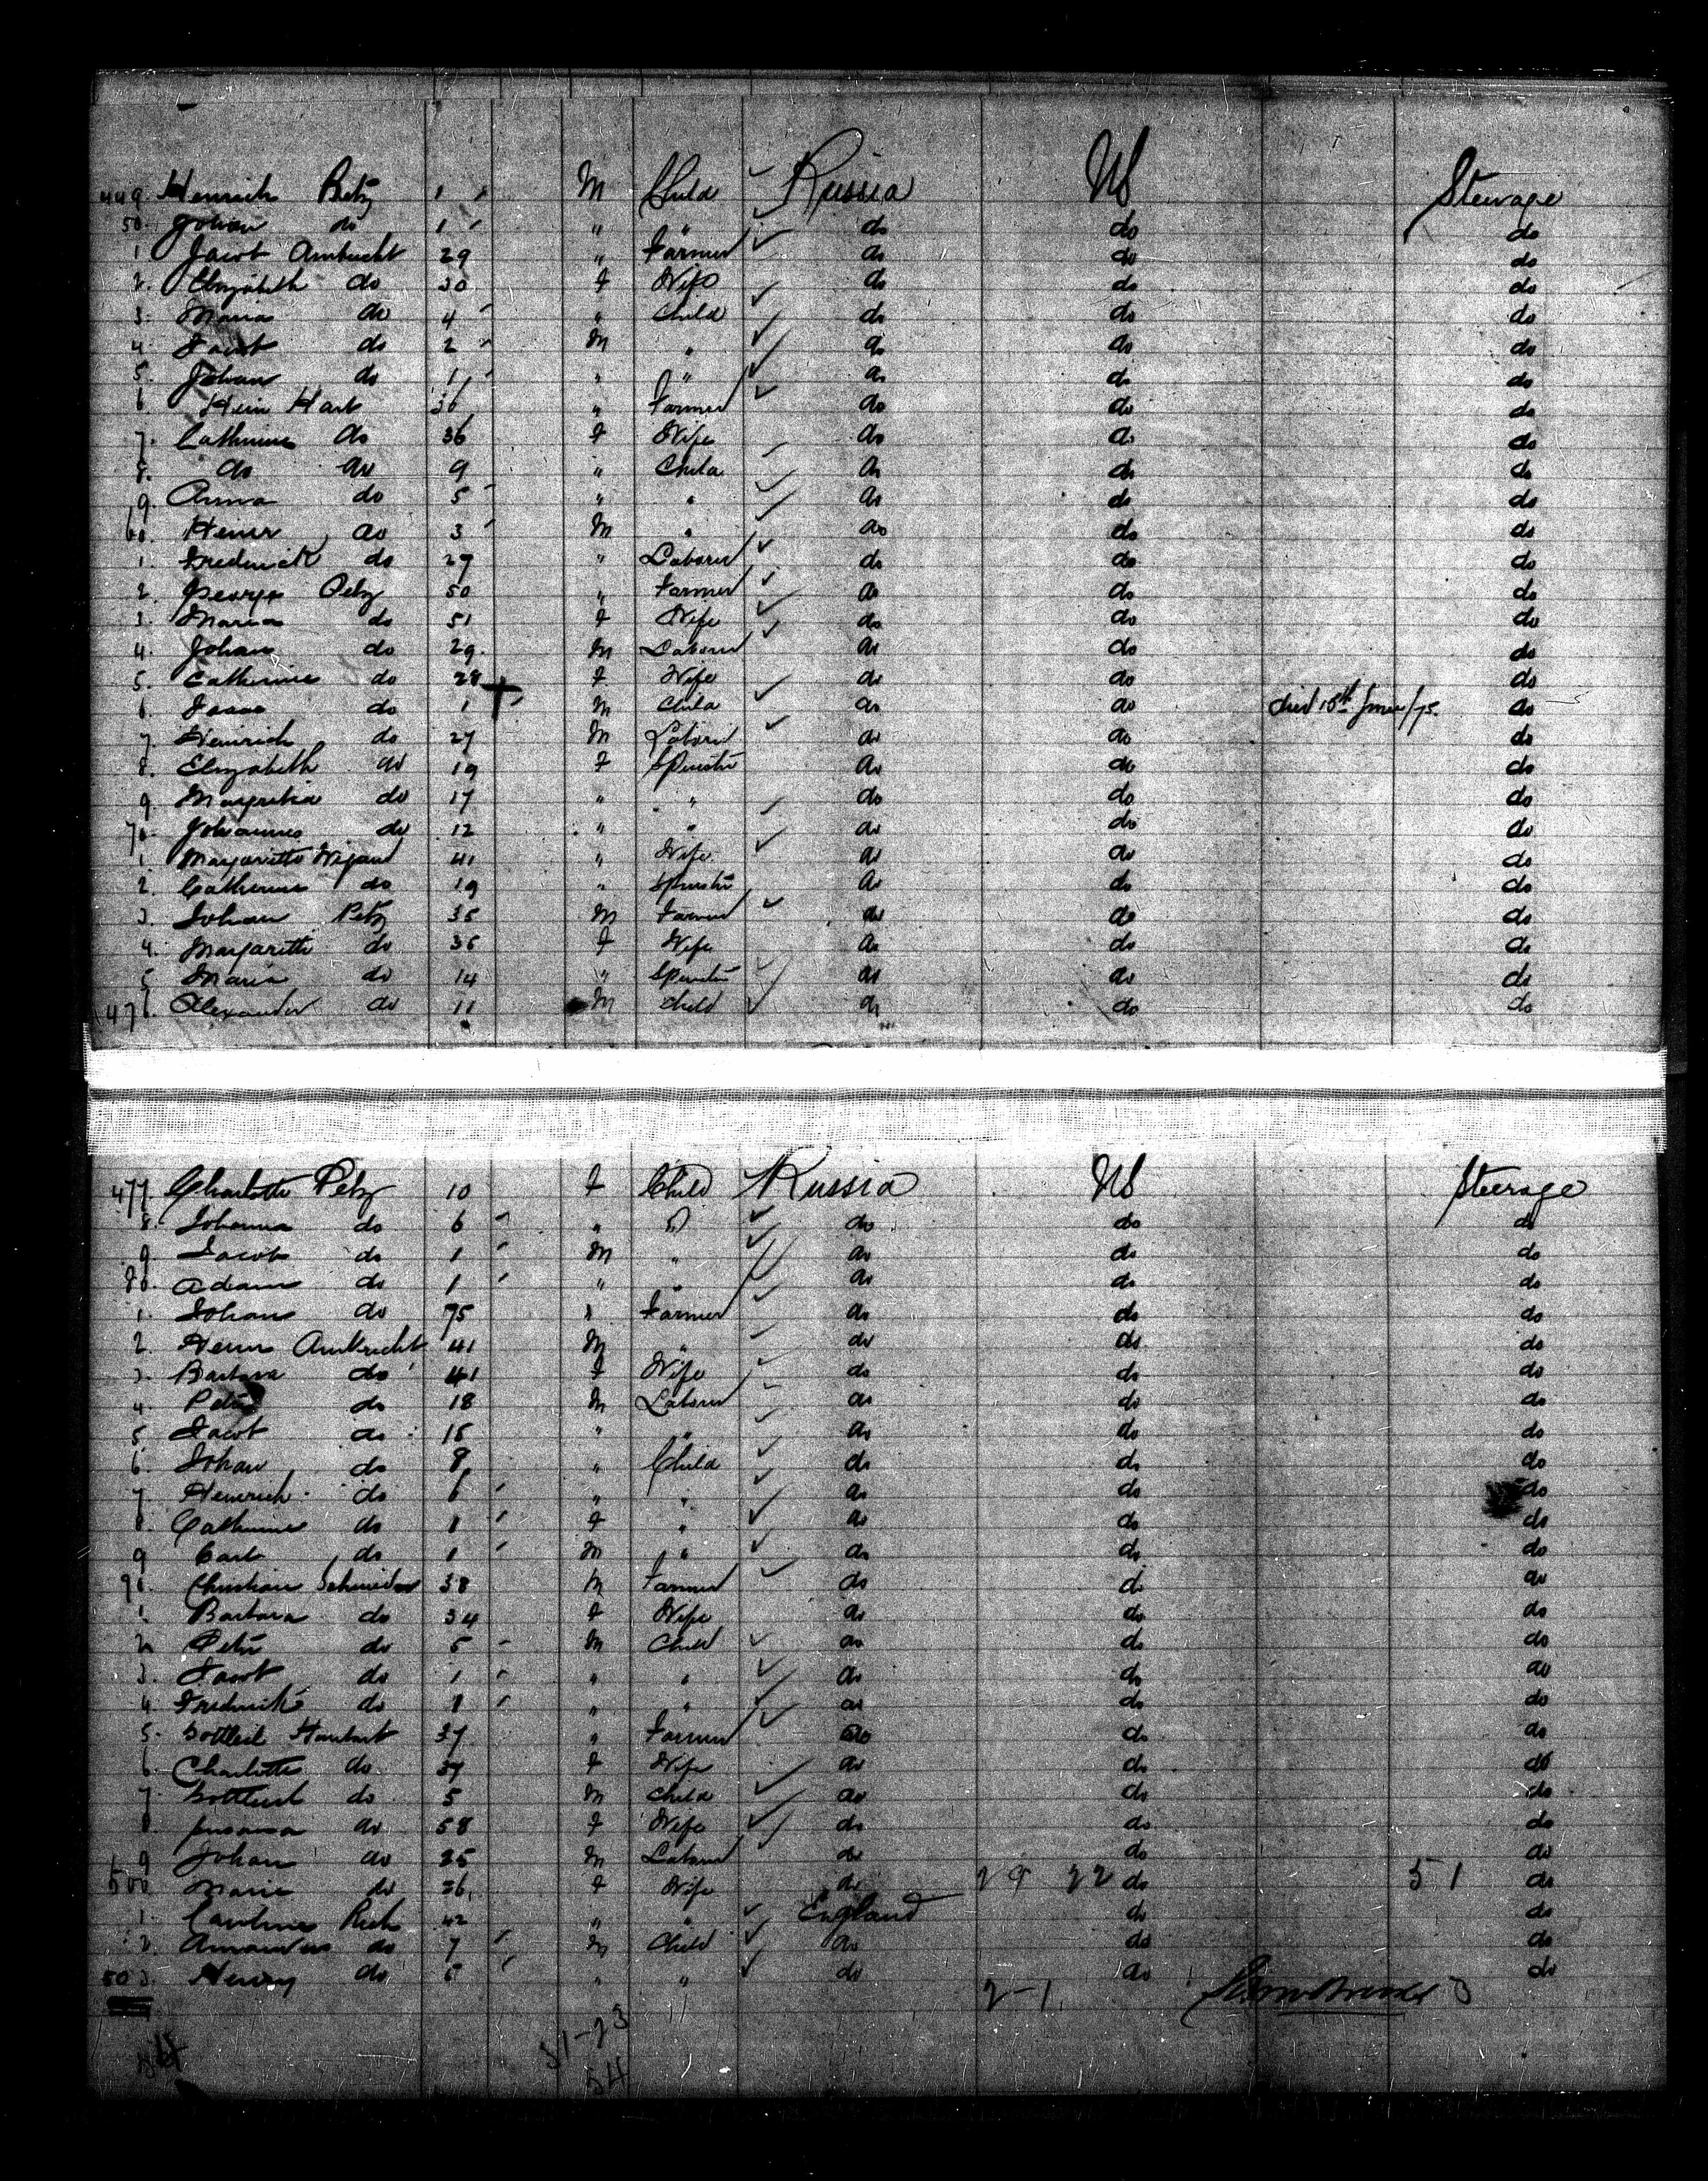 449. Heinrich Betz 1 M Child Russia US Steerage
50. Johan do 1 " " do do do
1 Jacob Ambrecht 29 " Farmer do do do
2. Elizabeth do 30 F Wife do do do
3. Maria do 4 " Child do do do
4. Jacob do 2 M " do do do
5. Johan do 1 " " do do do
6. Hein Hart 36 " Farmer do do do
7. Catherine do 36 F Wife do do do
8. do do 9 " Child do do do
9. Anna do 5 " " do do do
60. do 3 M " do do do
1. Frederick do 27 " Laborer do do do
2. George Petz 50 " Farmer do do do
3. Maria do 51 F Wife do do do
4. Johan do 29. M Laborer do do do
5. Catherine do 28 F Wife do do do
6. do 1 M Child do do died 15th June/75. do
7. Heinrich do 27 M Laborer do do do
8. Elizabeth do 19 F Spinster do do do
9. Margretha do 17 " " do do do
70. Johannes do 12 " " do do do
1. Margaretta Wigand 41 " Wife do do do
2. Catherine do 19 " Spinster do do do
3. Johan Petz 35 M Farmer do do do
4. Margaretta do 35 F Wife do do do
5 Maria do 14 " Spinster do do do
476. Alexander do 11 M Child do do do
477. Charlotte Petz 10 F Child Russia US Steerage
8. Johanna do 6 " " do do do
9. Jacob do 1 M " do do do
80. Adam do 1 " " do do do
1. Johan do 75 " Farmer do do do
2. Ambrecht 41 M " do do do
3. Barbara do 41 F Wife do do do
4. Peter do 18 M Laborer do do do
5 Jacob do 15 " " do do do
6. Johan do 8 " Child do do do
7. Heinrich do 6 " " do do do
8. Catherine do 1 F " do do do
9 Carl do 1 M " do do do
90. Christian Schneider 38 M Farmer do do do
1. Barbara do 34 F Wife do do do
2 Peter do 5 M Child do do do
3. Jacob do 1 " " do do do
4 Frederick do 1 " " do do do
5. Gottlieb 37 " Farmer do do do
6. Charlotte do 37 F Wife do do do
7. Gottlieb do 5 M Child do do do
8 Susanna do 58 F Wife do do do
9 Johan do 25 M Laborer do do do
500 Marie do 26 F Wife do 29 22 do 51 do
1. Caroline 42 " " England do do
2. Amandus do 7 M Child do do do
503. Henry do 5 " " do do do
2-1 3
51-23
54 54